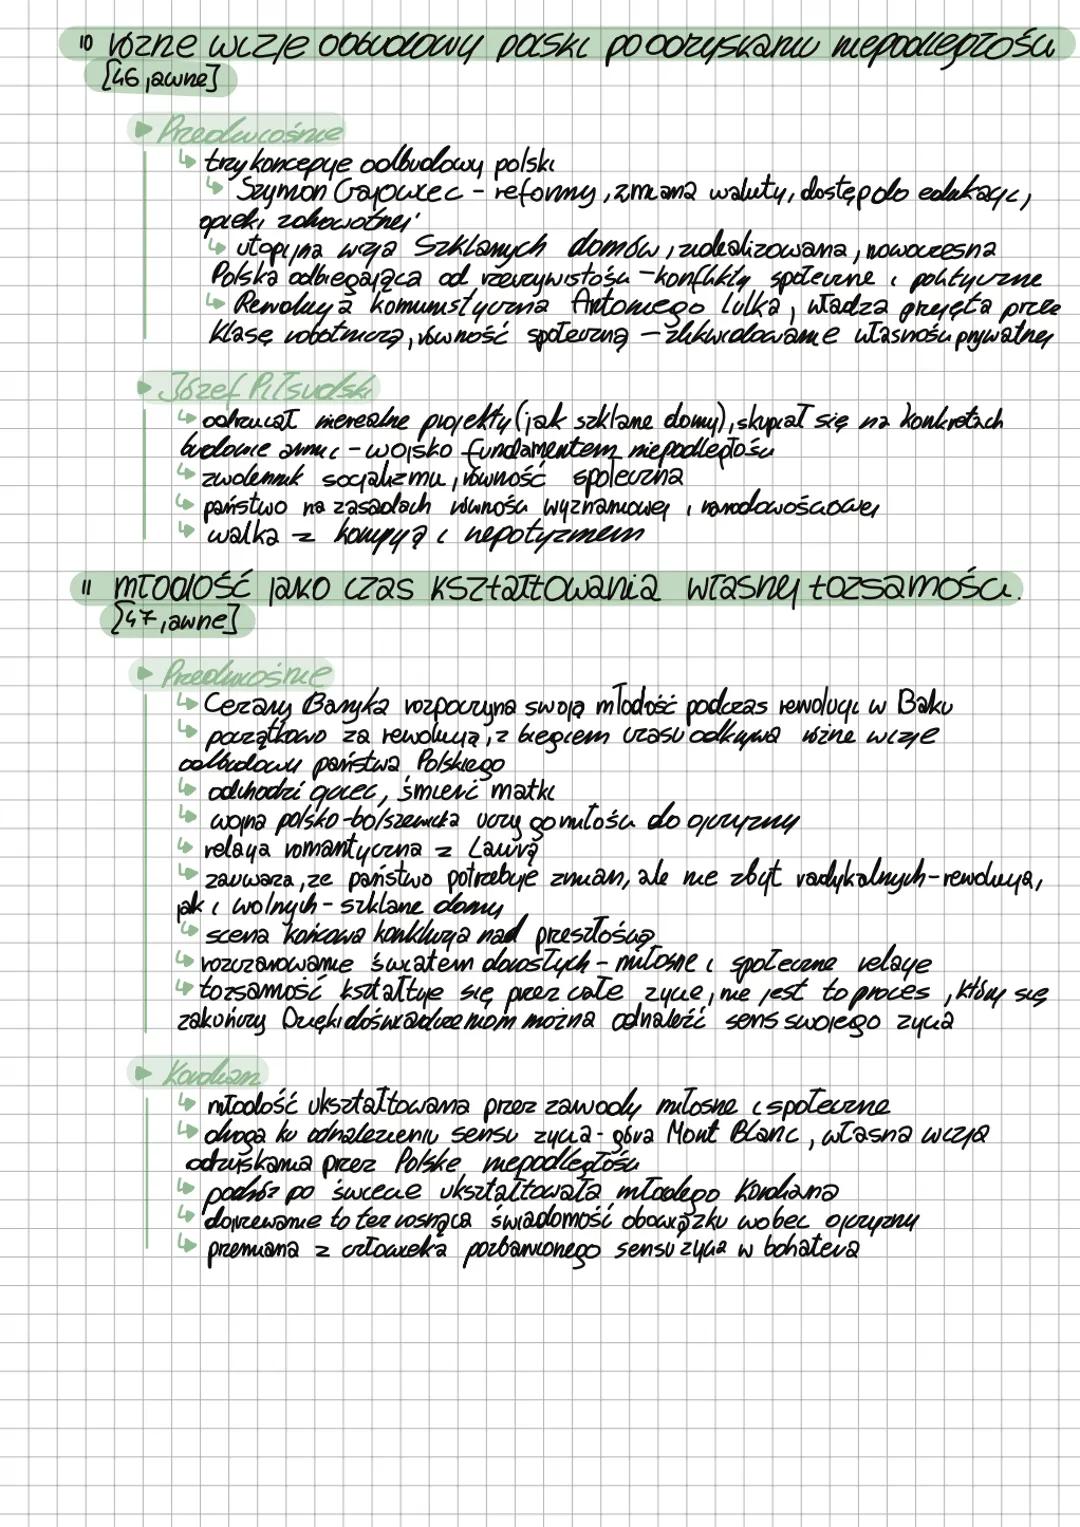 10 różne wizje odbudowy polski po odzyskaniu niepodległości
[46, jawne]
Przedwiośnie
trzy koncepcje odbudowy polski
Szymon Gajowiec - reformy, zmiana waluty, dostęp do edukacji,
opieki zdrowotnej
utopijna wizja Szklanych domów, zidealizowana, nowoczesna
Polska odbiegająca od rzeczywistości - konflikty społeczne i polityczne
Rewolucja komunistyczna Antoniego Lulka, władza przejęta przez
klasę robotniczą, równość społeczną - zlikwidowanie własności prywatnej
Józef Piłsudski
odrzucał nierealne projekty (jak szklane domy), skupiał się na konkretach
budowie armii - wojsko fundamentem niepodległości
zwolennik socjalizmu, równość społeczna
państwo na zasadach równości wyznaniowej i narodowościowej
walka z korupcją i nepotyzmem
11 młodość jako czas kształtowania własnej tożsamości.
[47, jawne]
Przedwiośnie
Cezary Baryka rozpoczyna swoją młodość podczas rewolucji w Baku
początkowo za rewolucją, z biegiem czasu odkrywa różne wizje
odbudowy państwa Polskiego
odchodzi ojciec, śmierć matki
wojna polsko-bolszewicka uczy go miłości do ojczyzny
relacja romantyczna z Laurą
zauważa, że państwo potrzebuje zmian, ale nie zbyt radykalnych - rewolucja,
jak i wolnych - szklane domy
scena końcowa konkluzja nad przeszłością
rozczarowanie światem dorosłych - miłosne i społeczne relacje
tożsamość kształtuje się przez całe życie, nie jest to proces, który się
zakończy Dzięki doświadczeniom można odnaleźć sens swojego życia
Kordian
młodość ukształtowana przez zawody miłosne i społeczne
droga ku odnalezieniu sensu życia - góra Mont Blanc, własna wizja
odzyskania przez Polskę niepodległości
podróż po świecie ukształtowała młodego Kordiana
dojrzewanie to też rosnąca świadomość obowiązku wobec ojczyzny
przemiana z człowieka pozbawionego sensu życia w bohatera